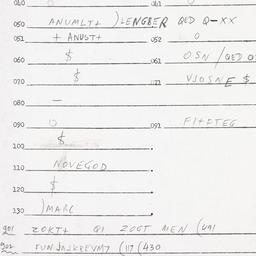 040 041
050 ANUMLT+ )LENGBER QED Q-XX
051 + ANUST+ 052 0
060 $ 061 OSN /QED
070 $ 071 VJOSNE $
080 —
090 0 091 FI+FTEG
100 $
110 NOVEGOD
120 $
130 )MARC
901 ZOKT+ QI ZOGT MEN (491
902 (117 (430